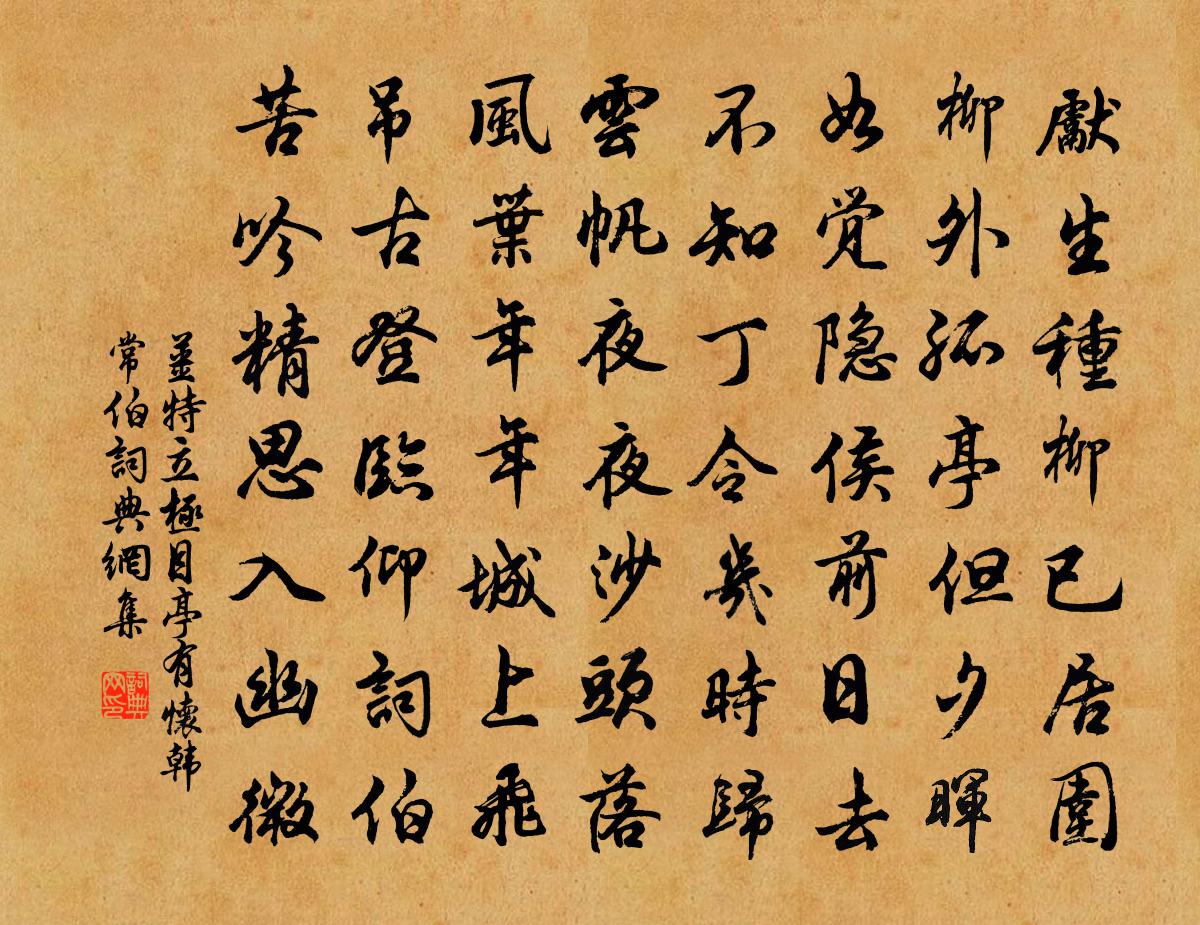 獻生種柳已居圍
柳外孤亭但夕暉
始覚隐侯前日去
不知丁令幾時歸
雲帆夜夜沙頭落
風葉年年城上飛
吊古登臨仰詞伯
苦吟精思入幽微
姜特立極目亭有懷韩
常伯詞典網集
詞典网印